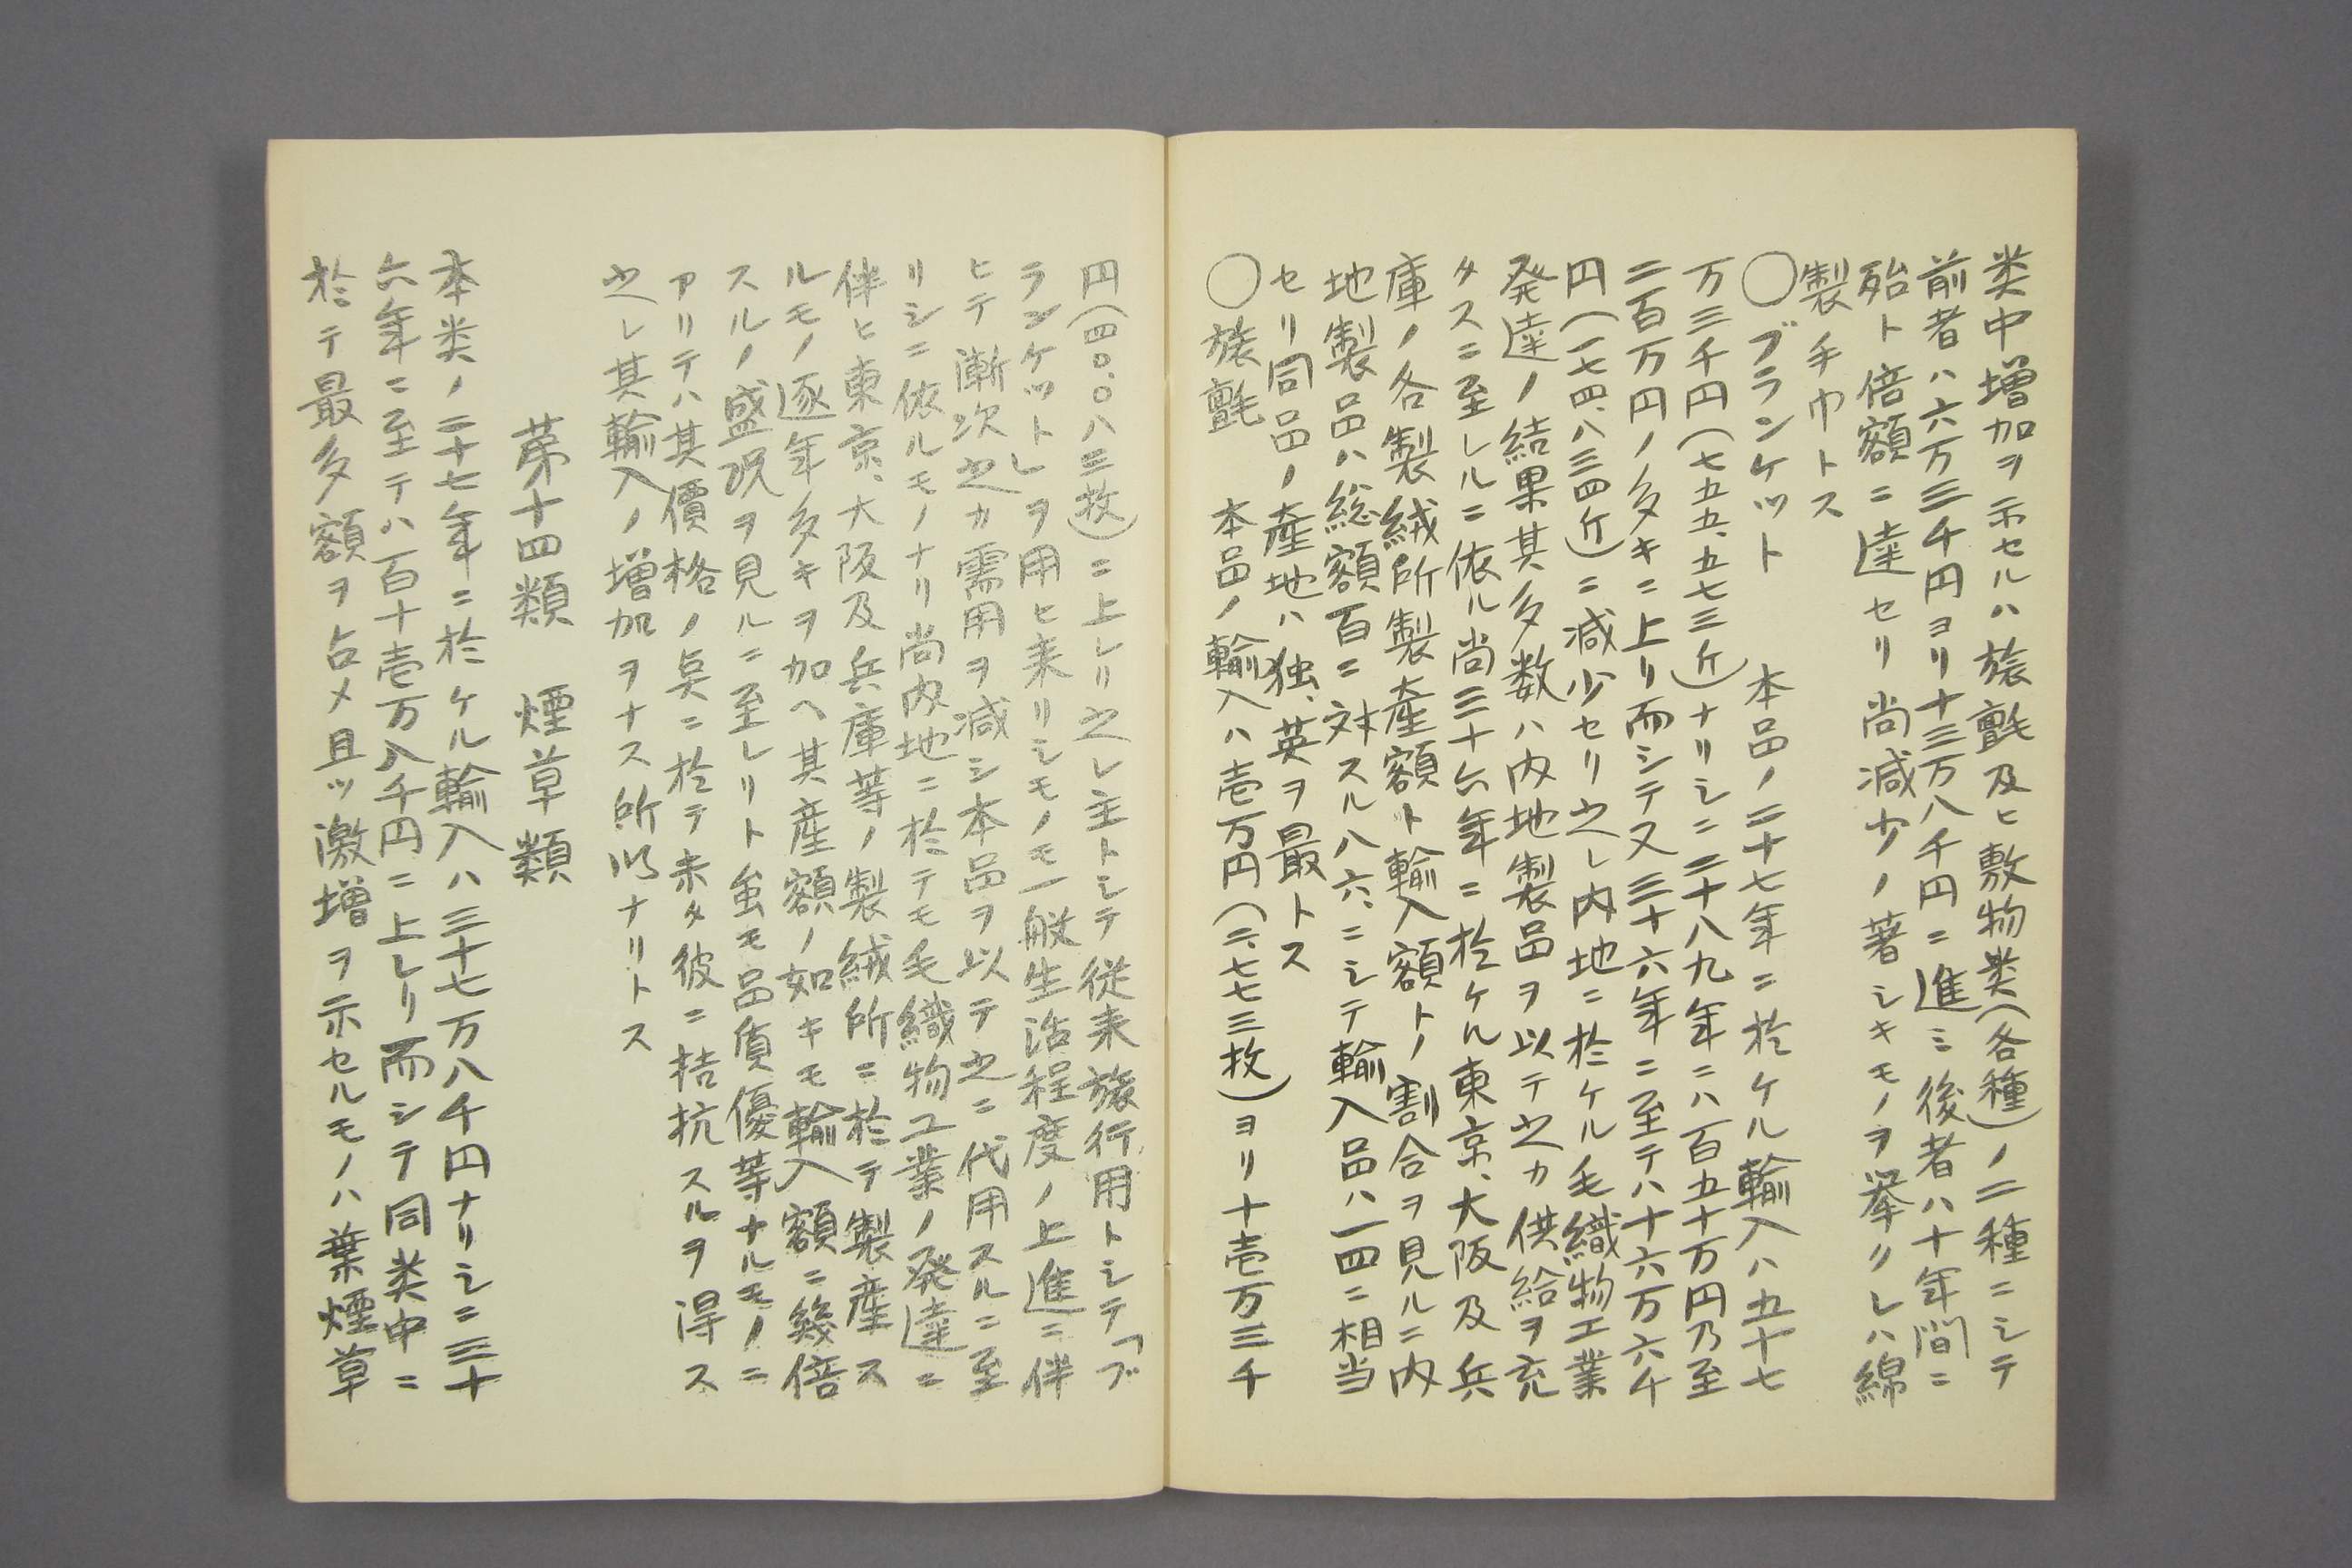 类中増加ヲ示セルハ旅氈及ヒ敷物类(各種)ノ二種ニシテ
前者ハ六万三千円ヨリ十三万八千円ニ進ミ後者ハ十年間ニ
殆ト倍額ニ達セリ尚減少ノ著シキモノヲ挙クレハ綿
製手巾トス
○ブランケット 本品ノ二十七年ニ於ケル輸入ハ五十七
万三千円(七五五、五七三斤)ナリシニ二十八九年ニハ百五十万円乃至
二百万円ノ多キニ上リ而シテ又三十六年ニ至テハ十六万六千
円(一七四、八三四斤)ニ減少セリ之レ内地ニ於ケル毛織物工業
発達ノ結果其多数ハ内地製品ヲ以テ之カ供給ヲ充
タスニ至レルニ依ル尚三十六年ニ於ケル東京、大阪及兵
庫ノ各製絨所製産額ト輸入額トノ割合ヲ見ルニ内
地製品ハ総額百ニ対スル八六、ニシテ輸入品ハ一四ニ相当
セリ同品ノ産地ハ独、英ヲ最トス
○旅氈 本品ノ輸入ハ壱万円(二、七七三枚)ヨリ十壱万三千
円(四〇、〇八三枚)ニ上レリ之レ主トシテ従来旅行用トシテ「ブ
ランケット」ヲ用ヒ来リシモノモ一般生活程度ノ上進ニ伴
ヒテ漸次之カ需用ヲ減シ本品ヲ以テ之ニ代用スルニ至
リシニ依ルモノナリ尚内地ニ於テモ毛織物工業ノ発達ニ
伴ヒ東京、大阪及兵庫等ノ製絨所ニ於テ製産ス
ルモノ逐年多キヲ加ヘ其産額ノ如キモ輸入額ニ幾倍
スルノ盛況ヲ見ルニ至レリト虽モ品質優等ナルモノニ
アリテハ其價格ノ点ニ於テ未タ彼ニ拮抗スルヲ得ス
之レ其輸入ノ増加ヲナス所以ナリトス
第十四類 煙草類
本类ノ二十七年ニ於ケル輸入ハ三十七万八千円ナリシニ三十
六年ニ至テハ百十壱万八千円ニ上レリ而シテ同类中ニ
於テ最多額ヲ占メ且ツ激増ヲ示セルモノハ葉煙草